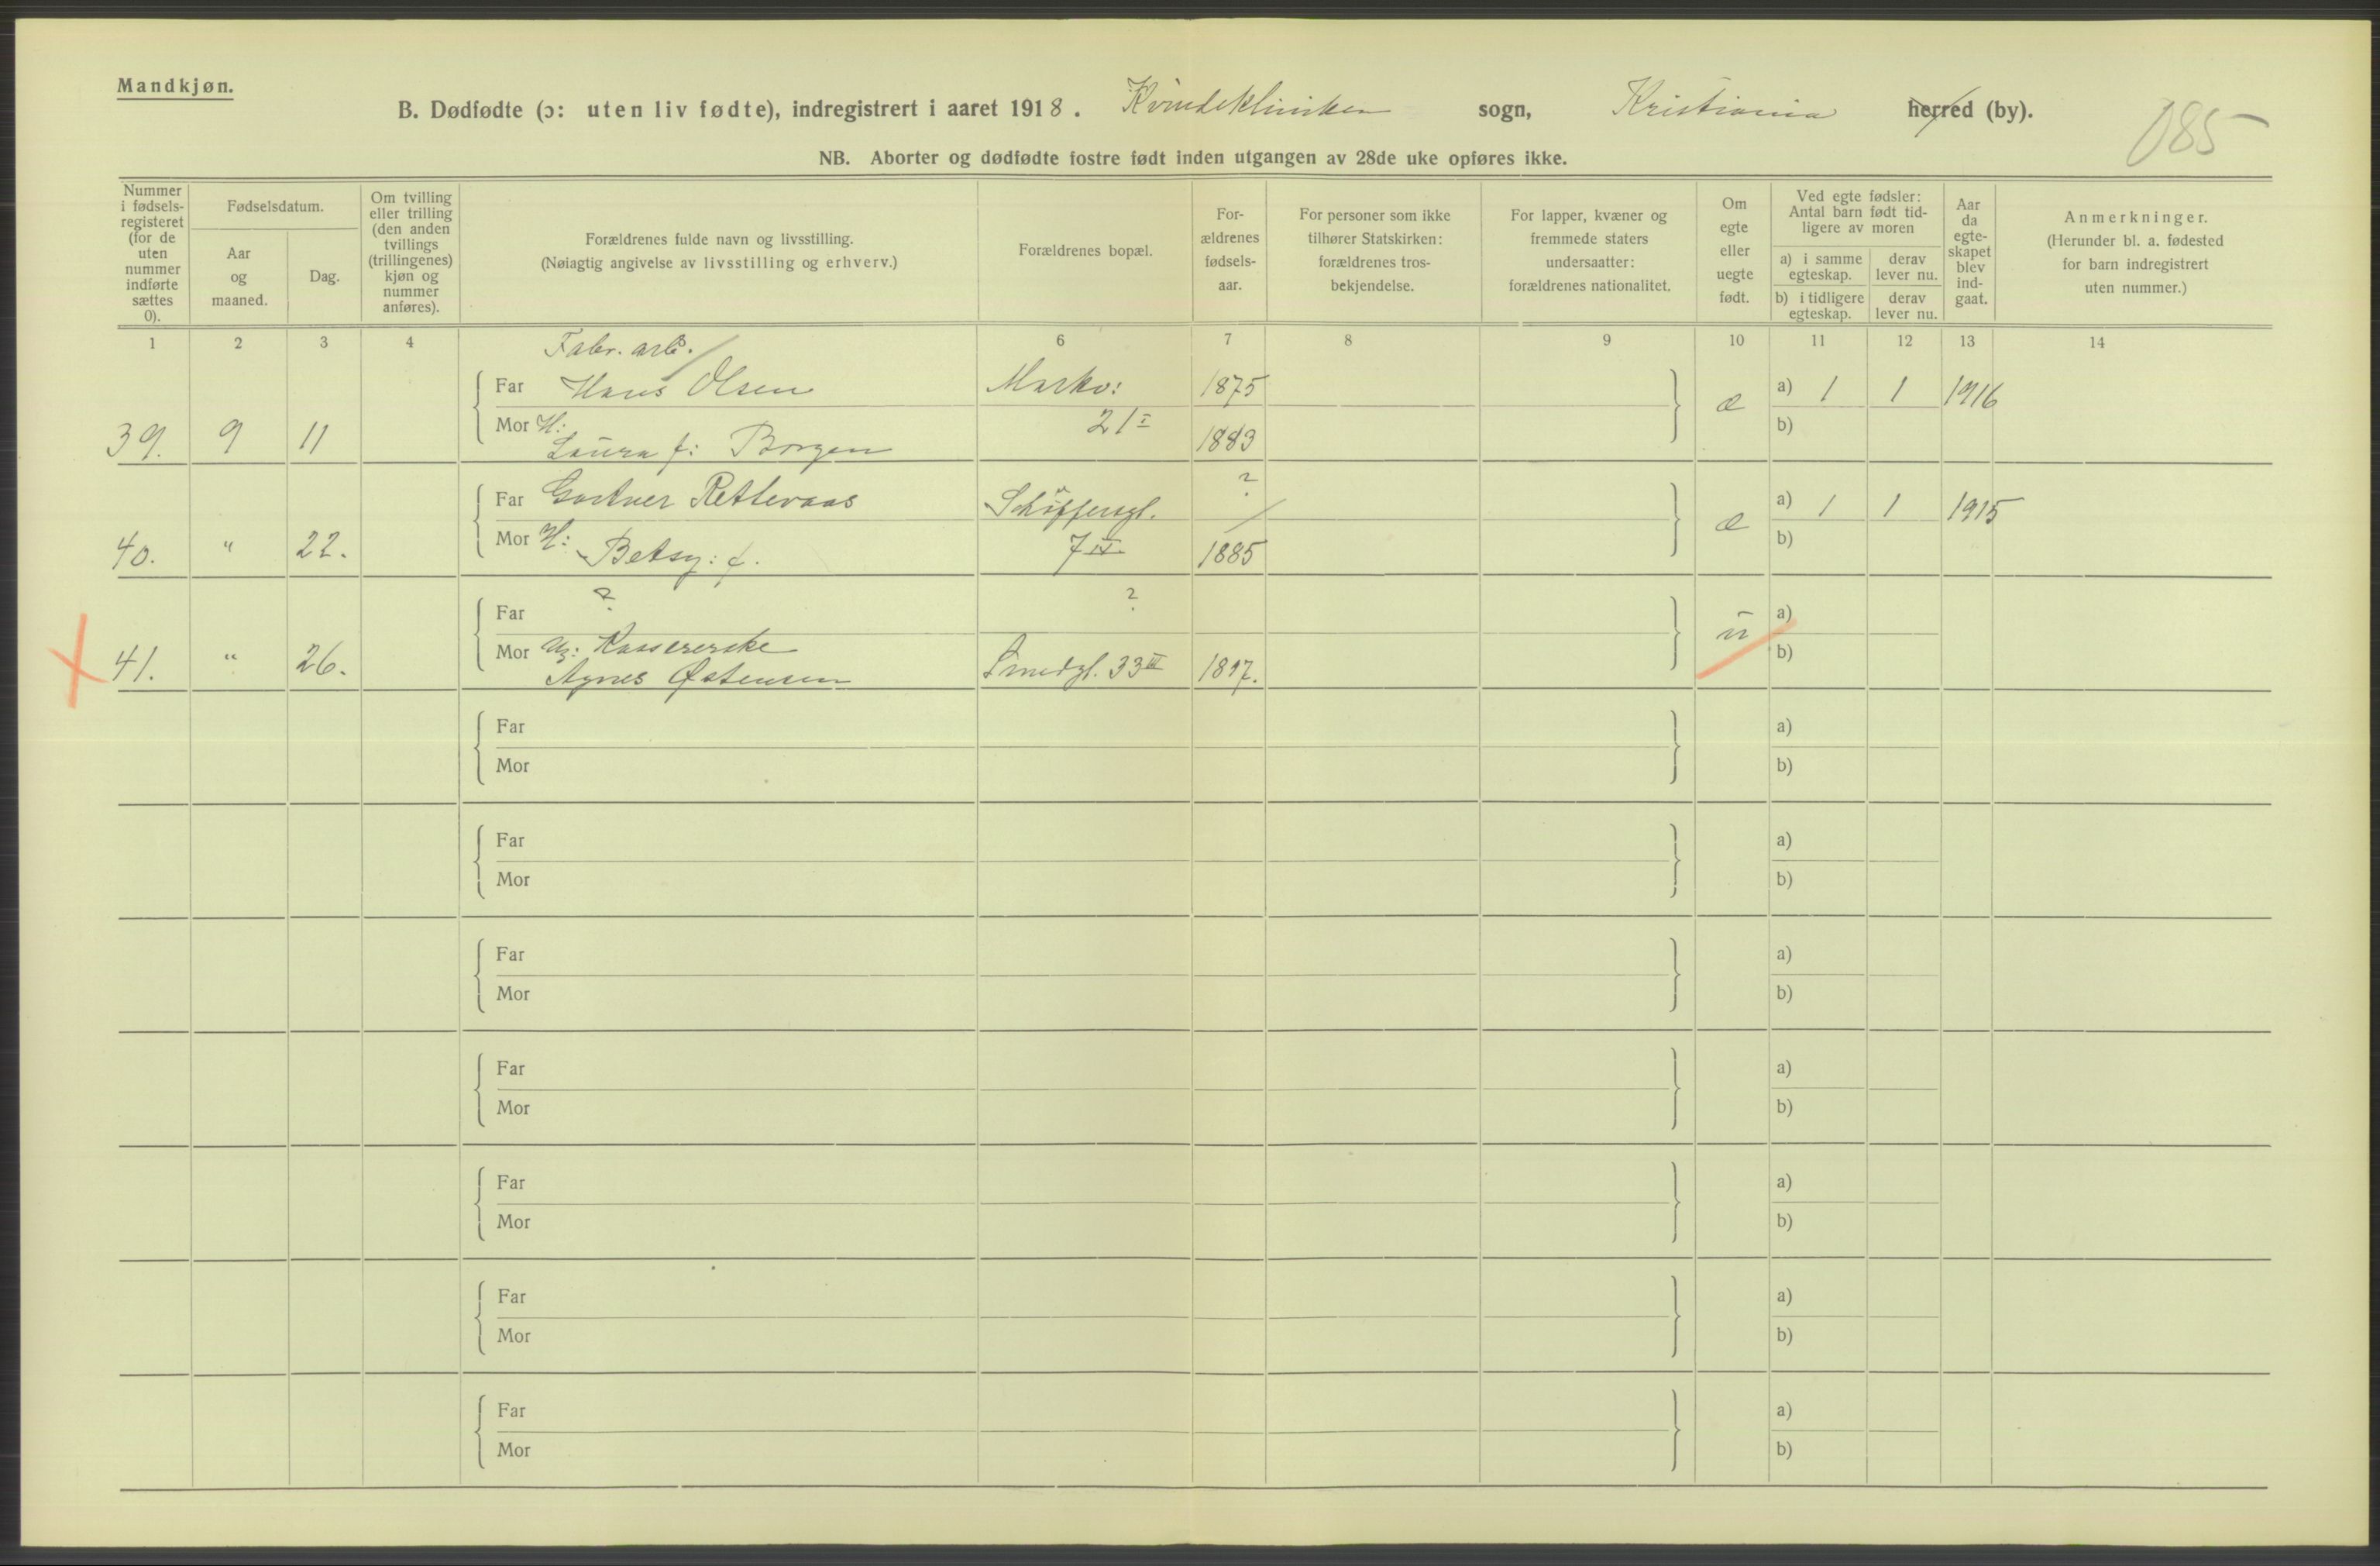 Mandkjøn.
B. Dødfødte (ɔ: uten liv fødte), indregistrert i aaret 1918. Kvindeklinikken sogn, Kristiania herred (by).
085
NB. Aborter og dødfødte fostre født inden utgangen av 28de uke opføres ikke.
Nummer i fødsels-registeret (for de uten nummer indførte sættes 0).
Fødselsdatum.
Aar og maaned.
Dag.
Om tvilling eller trilling (den anden tvillings (trillingenes) kjøn og nummer anføres).
Forældrenes fulde navn og livsstilling.
(Nøiagtig angivelse av livsstilling og erhverv.)
Forældrenes bopæl.
For-ældrenes fødsels-aar.
For personer som ikke tilhører Statskirken: forældrenes tros-bekjendelse.
For lapper, kvæner og fremmede staters undersaatter: forældrenes nationalitet.
Om egte eller uegte født.
Ved egte fødsler: Antal barn født tid-ligere av moren
a) i samme egteskap.
derav lever nu.
b) i tidligere egteskap.
derav lever nu.
Aar da egte-skapet blev ind-gaat.
Anmerkninger.
(Herunder bl. a. fødested for barn indregistrert uten nummer.)
1 2 3 4 6 7 8 9 10 11 12 13 14
Fabr. arb.
Far Hans Olsen Markv: 1875 a) 1 1 1916
39. 9 11 Mor H: Laura f: Borgen 21 I 1883 æ b)
Far Gartner Retlevaas ? a) 1 1 1915
40. " 22. Mor H: Betsy: f. 7 IV 1885 æ b)
Far ? ? a)
41. " 26. Mor Ug: Kassererske u b)
Agnes Østensen Smedgt. 33 III 1897.
Far a)
Mor b)
Far a)
Mor b)
Far a)
Mor b)
Far a)
Mor b)
Far a)
Mor b)
Far a)
Mor b)
Far a)
Mor b)